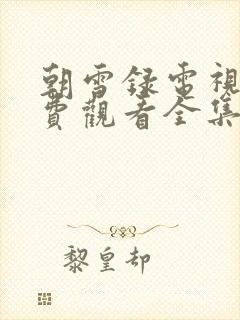 朝雪録電視
費觀看全集
黎皇却